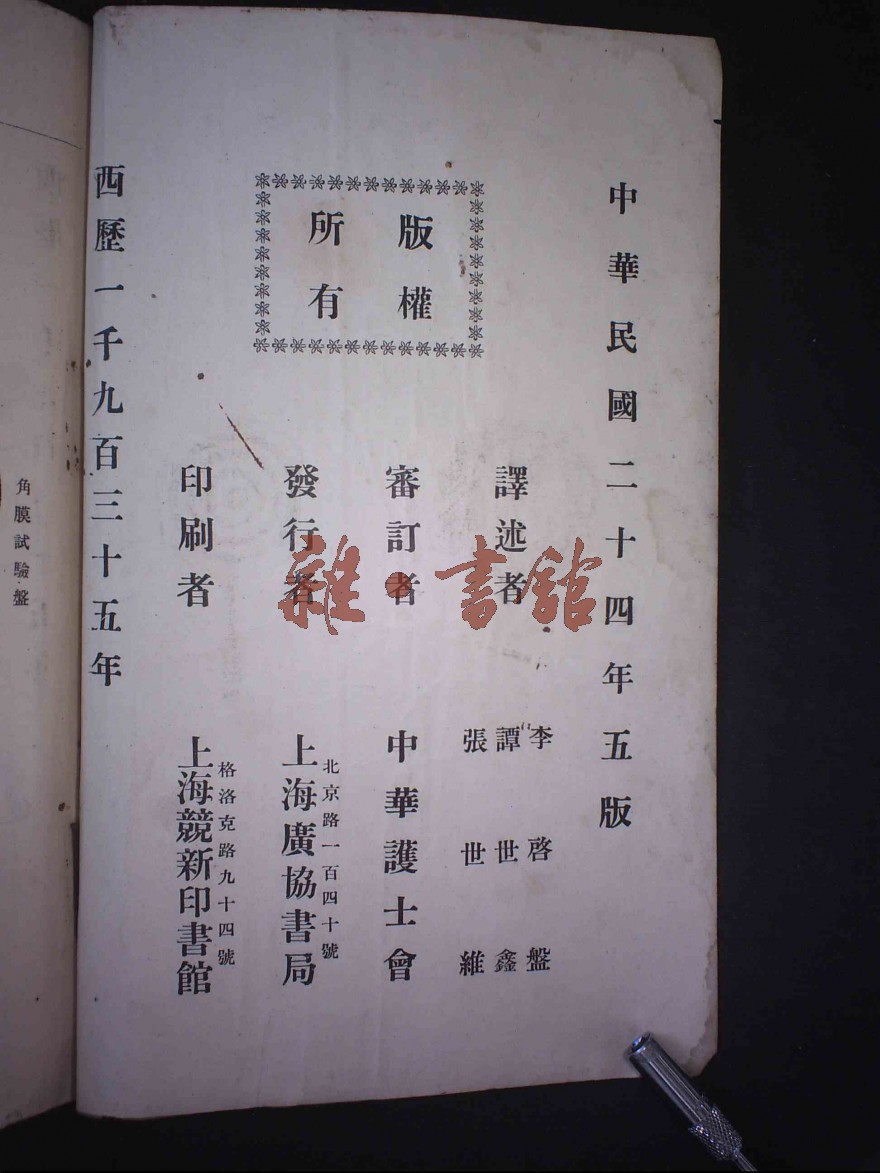 中華民國二十四年五版
版權
所有
譯述者
李啓盤
譚世鑫
張世維
審訂者
中華護士會
發行者
北京路一百四十號
上海廣協書局
印刷者
格洛克路九十四號
上海競新印書館
西歷一千九百三十五年
角膜試驗盤
雜·書館